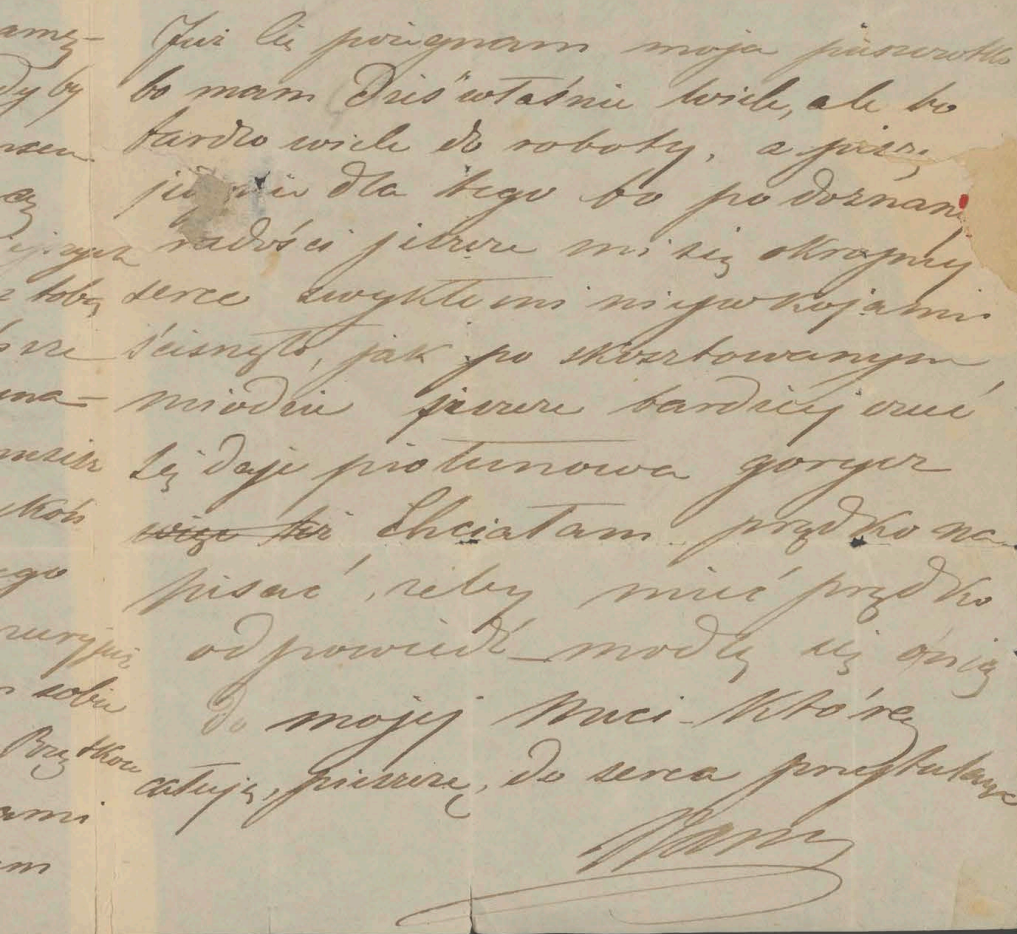 Już Cię pożegnam moja pieszczotko
bo mam Dziś właśnie wiele, ale bo
bardzo wiele do roboty, a piszę
dla tego bo po doznanej
radości jeszcze mi się okrojniej
serce zwykłemi niepokojami
ścisnęło, jak po skosztowanym
miodzie jeszcze bardziej czuć
się daje piołunowa gorycz
więc też Chciałam prędko na-
pisać, żeby mieć prędko
odpowiedź - modlę się o nią
do mojej Muci - Którą
całuję, pieszczę, do serca przytulam
amę-
dyby
z tobą
ma-
skoń
ego
sobie
ami
am